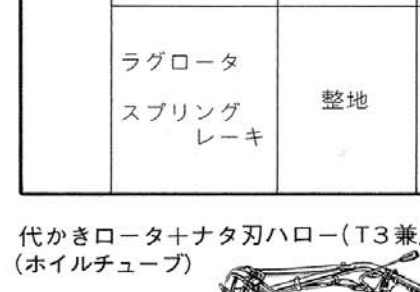 ラグロータ
スプリング
レーキ
整地
代かきロータ＋ナタ刃ハロー(T3兼
(ホイルチューブ)